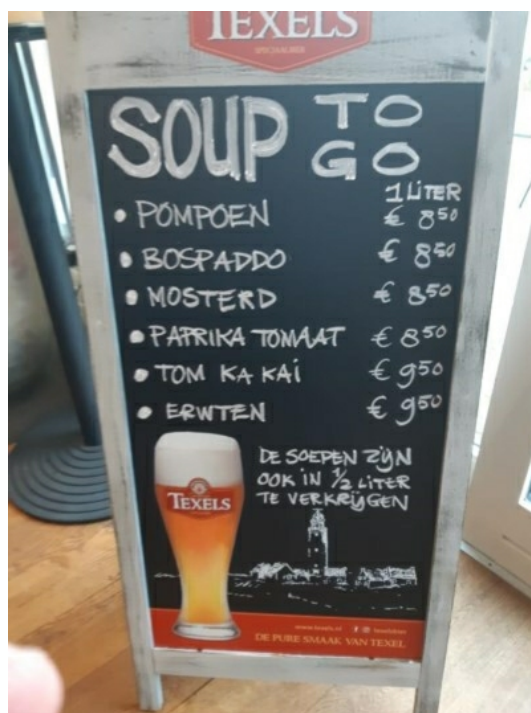 TEXELS
SPECIAALBIER
SOUP TO GO
1 LITER
• POMPOEN € 8.50
• BOSPADDO € 8.50
• MOSTERD € 8.50
• PAPRIKA TOMAAT € 8.50
• TOM KA KAI € 9.50
• ERWTEN € 9.50
DE SOEPEN ZIJN
OOK IN 1/2 LITER
TE VERKRIJGEN
TEXELS
www.texels.nl
DE PURE SMAAK VAN TEXEL